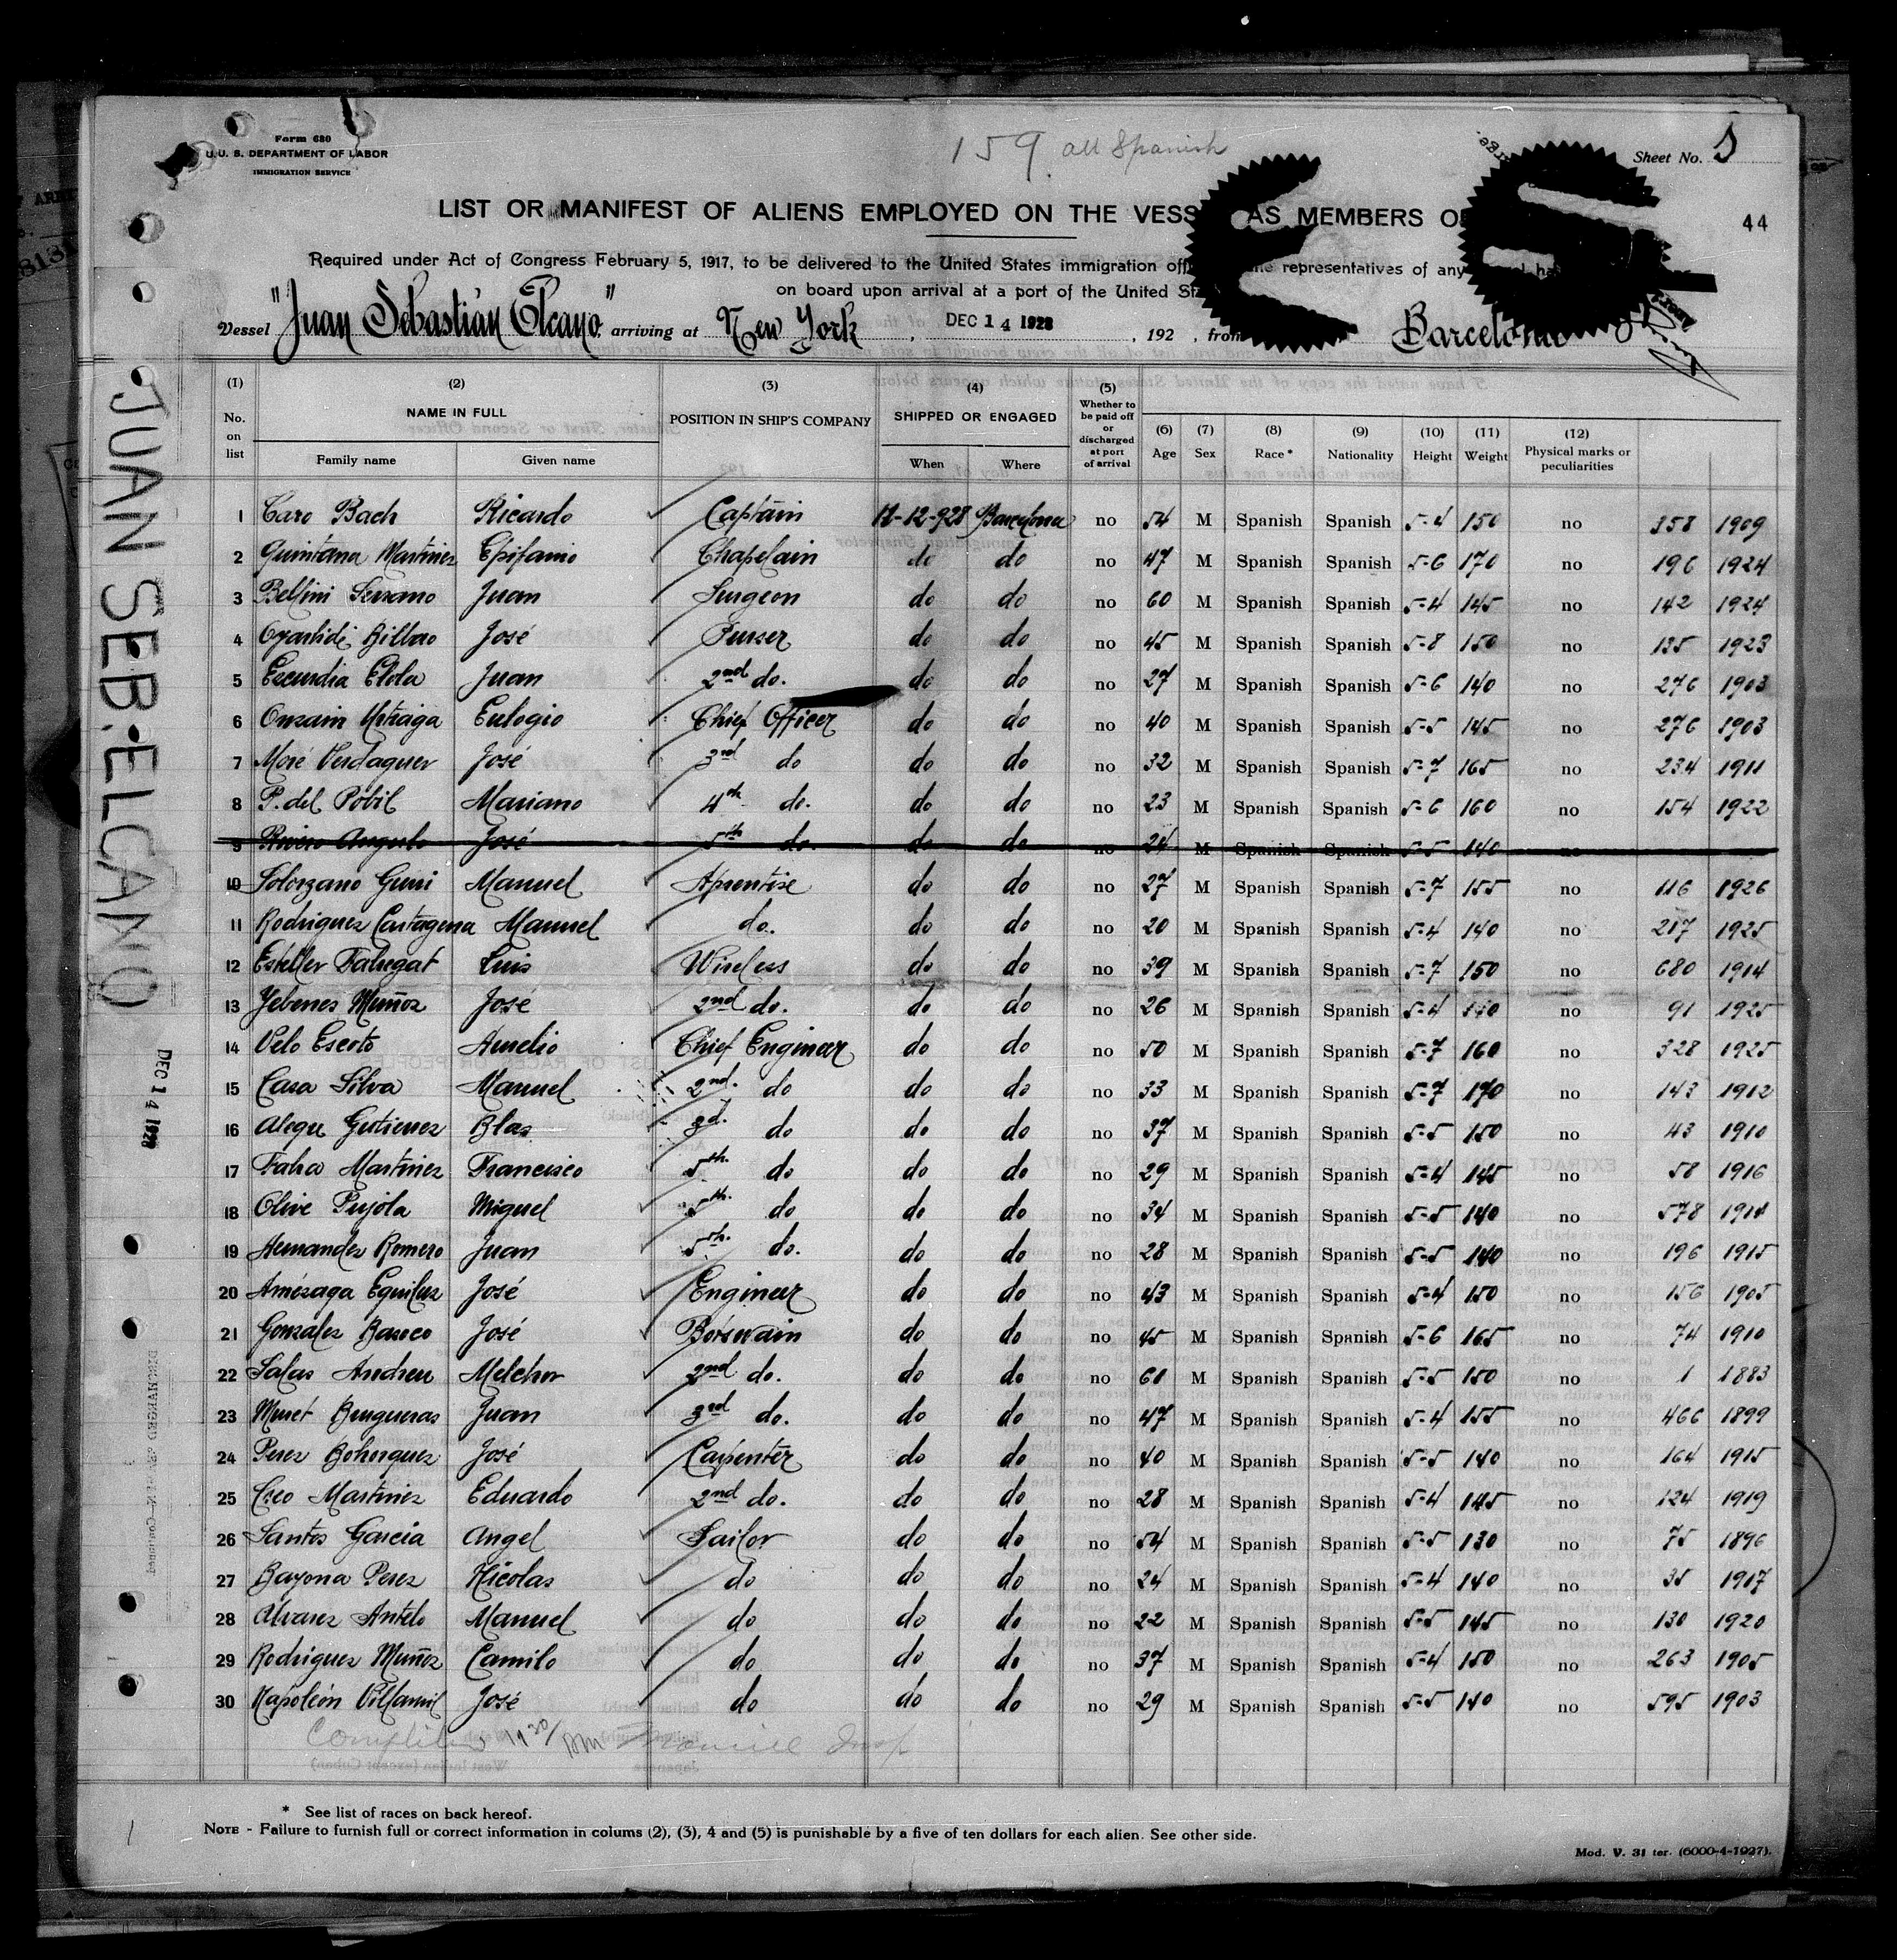 Form 680
U. S. DEPARTMENT OF LABOR
IMMIGRATION SERVICE
159 all Spanish
Sheet No. 5
LIST OR MANIFEST OF ALIENS EMPLOYED ON THE VESS AS MEMBERS O
44
Required under Act of Congress February 5, 1917, to be delivered to the United States immigration off representatives of any
on board upon arrival at a port of the United St
Vessel "Juan Sebastián Elcano" arriving at New York, DEC 14 1928, 192 , from Barcelona
JUAN SEB. ELCANO
DEC 14 1928
(1) (2) (3) (4) (5) (6) (7) (8) (9) (10) (11) (12)
No. on list NAME IN FULL POSITION IN SHIP'S COMPANY SHIPPED OR ENGAGED Whether to be paid off or discharged at port of arrival Age Sex Race* Nationality Height Weight Physical marks or peculiarities
Family name Given name When Where
1 Caro Bach Ricardo Captain 12-928 Barcelona no 54 M Spanish Spanish 5-4 150 no 358 1909
2 Quintana Martinez Epifanio Chapelain do do no 47 M Spanish Spanish 5-6 170 no 196 1924
3 Bellini Serrano Juan Surgeon do do no 60 M Spanish Spanish 5-4 145 no 142 1924
4 Bilbao José Purser do do no 45 M Spanish Spanish 5-8 150 no 135 1923
5 Elola Juan 2nd do. do do no 27 M Spanish Spanish 5-6 140 no 276 1903
6 Eulogio Chief Officer do do no 40 M Spanish Spanish 5-5 145 no 276 1903
7 Moré Verdaguer José 3rd do do do no 32 M Spanish Spanish 5-7 165 no 234 1911
8 P. del Póbil Mariano 4th do. do do no 23 M Spanish Spanish 5-6 160 no 154 1922
9 Rivero Angulo José 5th do. do do no 24 M Spanish Spanish 5-5 140 no
10 Solorzano Manuel Aprentise do do no 27 M Spanish Spanish 5-7 155 no 116 1926
11 Rodriguez Cartagena Manuel do. do do no 20 M Spanish Spanish 5-4 140 no 217 1925
12 Esteller Luis Wireless do do no 39 M Spanish Spanish 5-7 150 no 680 1914
13 Yebenes Muñoz José 2nd do. do do no 26 M Spanish Spanish 5-4 no 91 1925
14 Velo Aurelio Chief Engineer do do no 50 M Spanish Spanish 5-7 160 no 328 1925
15 Casa Silva Manuel 2nd. do do do no 33 M Spanish Spanish 5-7 170 no 143 1912
16 Alegre Gutierrez Blas 3d. do do do no 37 M Spanish Spanish 5-5 150 no 43 1910
17 Martinez Francisco 5th. do do do no 29 M Spanish Spanish 5-4 145 no 58 1916
18 Olive Pujola Miguel 5th. do do do no 34 M Spanish Spanish 5-5 140 no 578 1914
19 Hernandez Romero Juan 5th. do. do do no 28 M Spanish Spanish 5-5 140 no 196 1915
20 Amézaga Eguiluz José Engineer do do no 43 M Spanish Spanish 5-4 150 no 156 1905
21 Gonzalez José Botswain do do no 45 M Spanish Spanish 5-6 165 no 74 1910
22 Salas Andreu Melchor 2nd do. do do no 61 M Spanish Spanish 5-5 150 no 1 1883
23 Muret Brugueras Juan 3rd do. do do no 47 M Spanish Spanish 5-4 155 no 466 1899
24 Perez Bohorquez José Carpenter do do no 40 M Spanish Spanish 5-5 140 no 164 1915
25 Martinez Eduardo 2nd do. do do no 28 M Spanish Spanish 5-4 145 no 124 1919
26 Santos Garcia Angel Sailor do do no 54 M Spanish Spanish 5-5 130 no 75 1896
27 Bayona Perez Nicolas do do do no 24 M Spanish Spanish 5-4 140 no 35 1917
28 Alvarez Antelo Manuel do do do no 22 M Spanish Spanish 5-5 145 no 130 1920
29 Rodriguez Muñoz Camilo do do do no 37 M Spanish Spanish 5-4 150 no 263 1905
30 Napoleón Villamil José do do do no 29 M Spanish Spanish 5-5 140 no 595 1903
* See list of races on back hereof.
NOTE - Failure to furnish full or correct information in colums (2), (3), 4 and (5) is punishable by a five of ten dollars for each alien. See other side.
Mod. V. 31 ter. (6000-4-1927).